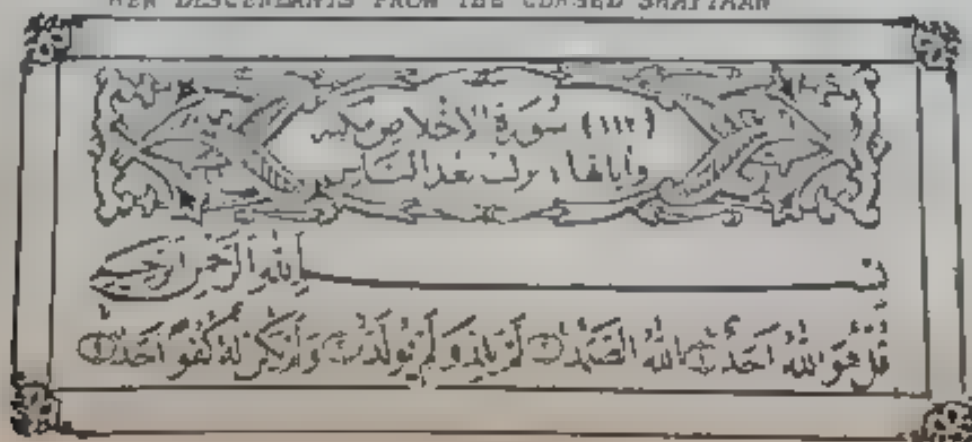 HER DESCENDANTS FROM THE CURSED SHAITAAN
(١١٢) سُورَةُ الْإِخْلَاصِ مَكِّيَّة
وآياتها ٤ نزلت بعد الناس
بِسْمِ اللَّهِ الرَّحْمَٰنِ الرَّحِيمِ
قُلْ هُوَ اللَّهُ أَحَدٌ ١ اللَّهُ الصَّمَدُ ٢ لَمْ يَلِدْ وَلَمْ يُولَدْ ٣ وَلَمْ يَكُن لَّهُ كُفُوًا أَحَدٌ ٤